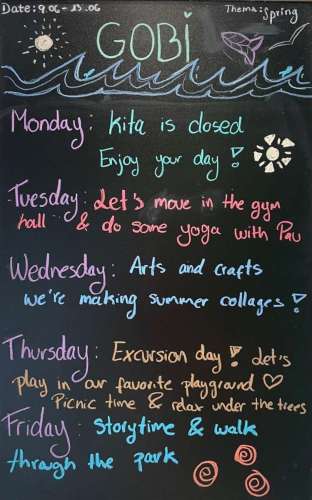 Date: 9.06 - 13.06
Thema: Spring
GOBi
Monday: Kita is closed
Enjoy your day!
Tuesday: Let's move in the gym
hall & do some yoga with Pau
Wednesday: Arts and crafts
we're making summer collages!
Thursday: Excursion day! Let's
play in our favorite playground ♡
Picnic time & relax under the trees
Friday: Storytime & walk
through the park